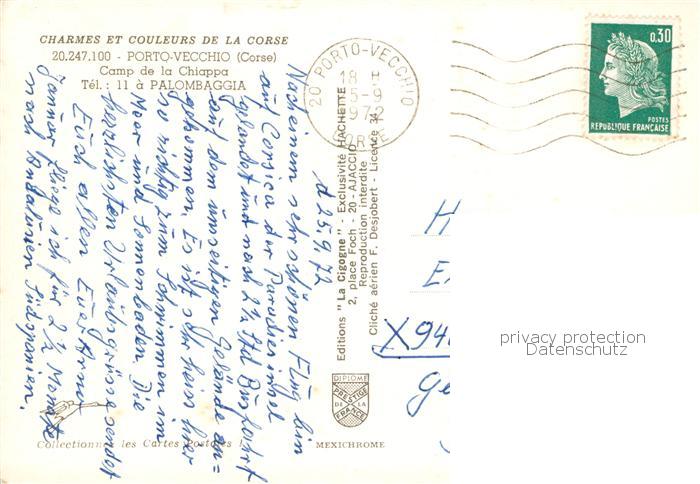 CHARMES ET COULEURS DE LA CORSE
20.247.100 - PORTO-VECCHIO (Corse)
Camp de la Chiappa
Tél. : 11 à PALOMBAGGIA
20 PORTO-VECCHIO
18 H
5-9
1972
CORSE
0,30
POSTES
REPUBLIQUE FRANÇAISE
d 25.9.72
Nach einem sehr schönen Flug bin
auf Corsica der Paradiesinsel
gelandet und nach 2½ Std Busfahrt
auf dem umseitigen Gelände an=
gekommen. Es ist sehr heiss hier
so richtig zum Schwimmen im
Meer und Sonnenbaden. Die
herzlichsten Urlaubsgrüsse sendet
Euch allen Euer Arno
Januar fliege ich für 2½ Monate
nach Andalusien Südspanien.
Editions "La Cigogne" - Exclusivité HACHETTE
2, place Foch - 20 - AJACCIO
Reproduction interdite
Cliché aérien F. Desjobert - Licence 34
H
X94
privacy protection
Datenschutz
DIPLOME
PRESTIGE
DE LA
FRANCE
Collectionnez les Cartes Postales
MEXICHROME